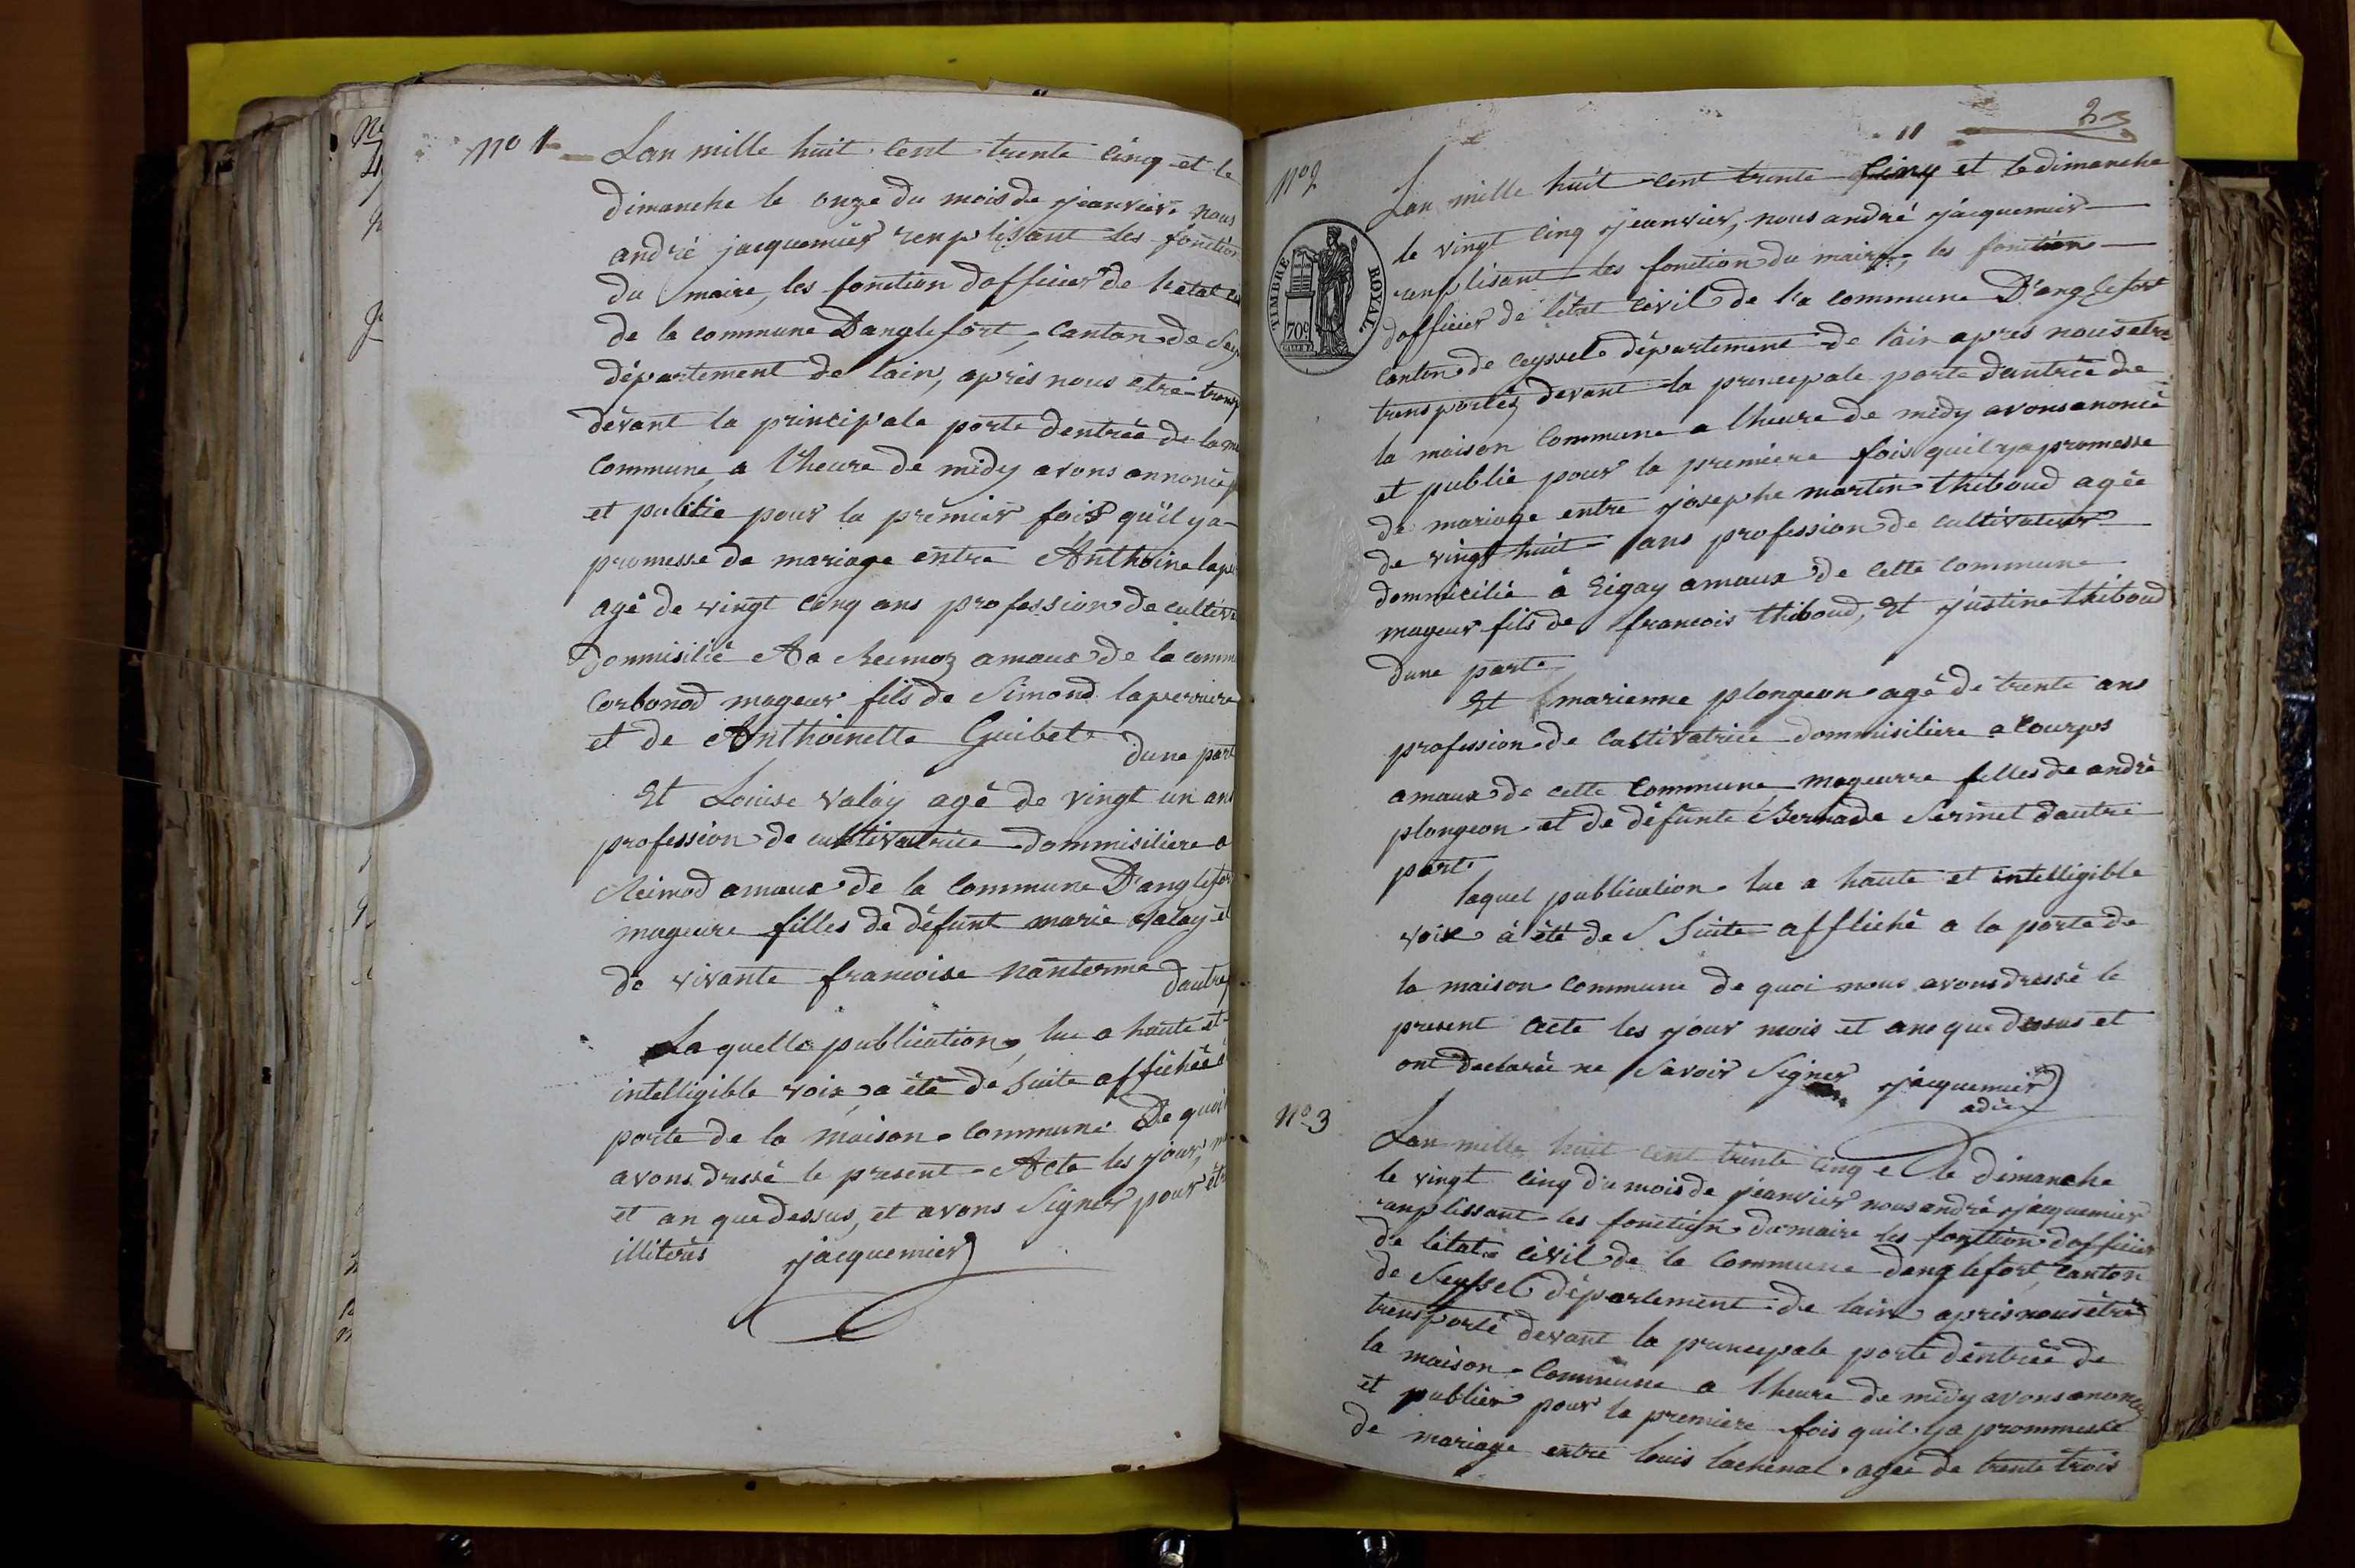 No 1
Lan mille huit cent trente cinq et le
dimanche le onze du mois de jeanvier nous
andré jacquemier renplisant les fonction
du maire, les fonction dofficier de letat
de la commune Danglefort, Canton de
département de lain, après nous etré
dévant la principale porte dentréé de la
Commune a l'heure de midy avons annoncé
et publié pour la prémier fois qu'il ya
promesse de mariage entre Anthoine
agé de vingt cinq ans profession de
dommisilié A amaux de la
Corbonod mageur fils de Simond laperriere
et de Anthoinette Guibet dune part
Et Louise valay agé de vingt un ans
profession de cultivatrice dommisiliere a
amaux de la Commune D'anglefort
mageure filles de défunt marie valay et
de vivante francoise nanterme
La quelle publication, lue a haute et
intelligible voix, a été de suite affichéé à
porte de la maison Commune De quoi
avons dressé le present Acte les jour,
et an que dessus, et avons Signer pour
illiterés jacquemier
23
No 2
Lan mille huit cent trente Cinq et le dimanche
le vingt cinq jeanvier, nous andré jacquemier
renplisant les fonction du maire, les fonction
dofficier de létat civil de la commune D'anglefort
Canton de Ceyssel département de lain apres nous etre
transportéz devant la principale porte dantréé de
la maison Commune a lheure de midy avons anoncé
et publié pour la premiere fois quil ya promesse
de mariage entre josephe martin thiboud agée
de vingt huit ans profession de cultivateur
dommicilié à Eigay amaux de cette commune
mageur fils de francois thiboud, Et justine thiboud
dune part
Et marienne plongeon agé de trente ans
profession de Cultivatrice dommisiliere a Courps
amaux de cette Commune mageurre filles de andré
plongeon et de défunte Bernade Sermet dautre
part
laquel publication lue a haute et intelligible
voix à été de Suite affiché a la porte de
la maison Commune de quoi nous avons dressé le
present acte les jour mois et ans que dessus et
ont declaréé ne Savoir Signer jacquemier
TIMBRE ROYAL
70c
No 3
Lan mille huit cent trente cinq e le dimanche
le vingt cinq du mois de jeanvier nous andré jacquemier
ranplissant les fonction du maire les fonttion dofficier
de létat civil de la Commune danglefort, Canton
de Seyssel département de lain apris nous étré
transporté devant la principale porte déntréé de
la maison Commune a lheure de midy avons anoncé
et publier pour la premiere fois quil ya prommesse
de mariage entre louis lachenal agée de trente trois